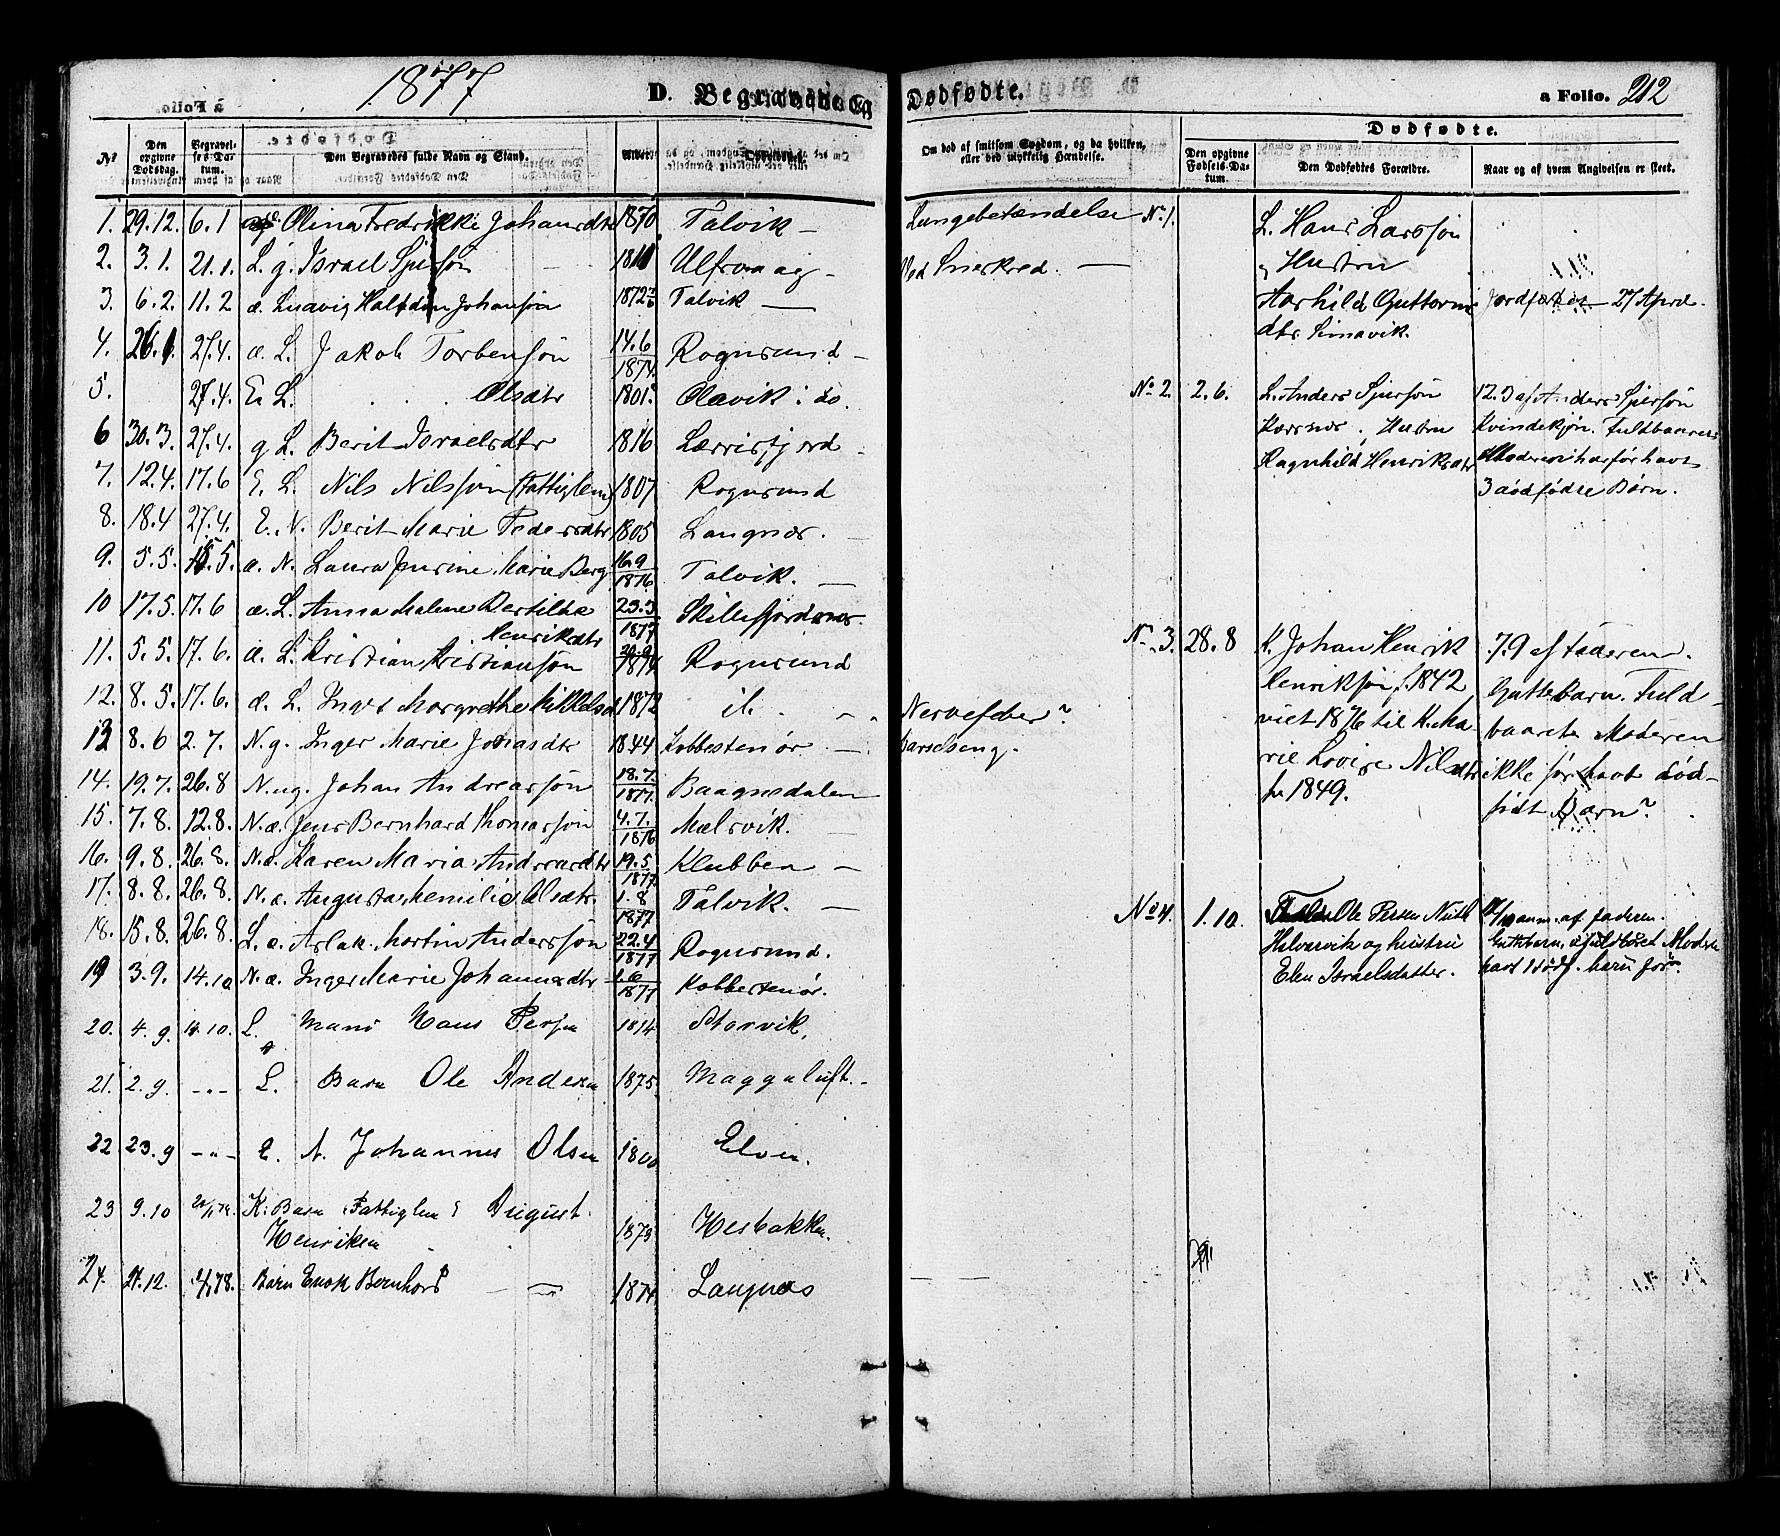 1877
D. Begravede og Dødfødte.
a Folio. 212
No
Den opgivne Dødsdag.
Begravelses-Datum.
Den Begravedes fulde Navn og Stand.
Om død af smitsom Sygdom, og da hvilken, eller ved ulykkelig Hændelse.
Dødfødte.
Den opgivne Fødsels-Datum.
Den Dødfødtes Forældre.
Naar og af hvem Angivelsen er skeet.
1. 29.12. 6.1 Olina Fredrikke Johansdtr 1870 Talvik — Lungebetændelse
2. 3.1. 21.1. L. g. Israel 1811 — Ved Sneskred. —
3. 6.2. 11.2 æ. Ludvig Halfdan Johansøn 1872 Talvik —
4. 26.1 27.4. æ. L. Jakob Torbensøn 14.6 1874. Rognsund —
5. 27.4. E. L. . . . Olsdtr 1801. Olavik i do.
6 30.3. 27.4. g L. Berit Israelsdtr 1816 Lærrisfjord
7. 12.4. 17.6 E. L. Nils Nilssøn (Fattiglem) 1807 Rognsund
8. 18.4 27.4. E. N. Berit Marie Pedersdtr 1805 Langnæs. —
9. 5.5. 15.5. æ. N. Laura Marie Berg 16.9 1876 Talvik. —
10 17.5. 17.6 æ. L. Anna Malene Bertilka Henriksdtr 23.3 1877
11. 5.5. 17.6. æ. L. Kristian Kristiansøn Rognsund
12. 8.5. 17.6. æ. L. Inger Margrethe Mikkelsd 1872 ib.
13 8.6 2.7. N. g. Inger Marie Jonasdtr 1844 Kobbestenør. — Nervefeber? Barselseng.
14. 19.7. 26.8 N. ug. Johan Andreassøn 18.7. 1877. Baagnsdalen
15. 7.8. 12.8. N. æ. Jens Bernhard Thomassøn 4.7. 1876 Mælsvik. —
16. 9.8. 26.8. N. æ. Karen Maria 19.5 1877 Klubben —
17. 8.8. 26.8. N. æ. Olsdtr. 1.8 1877 Talvik. —
18. 15.8. 26.8. L. æ. Aslak Martin Anderssøn 22.4 1877 Rognsund.
19 3.9. 14.10 N. æ. Inger Marie Johannesdtr 1.6 1877 Kobbestenør.
20. 4.9. 14.10. L. Mand Hans Persen 1814 Storvik.
21. 2.9. -"- L. Barn Ole Andersen 1875 Maggaluft. -
22 23.9 -"- E. N. Johannes Olsen 1800 Elven.
23 9.10 K. Barn Fattiglem August Henriksen 1873 Hesbakken.
24. 27.12. 78. Barn Enok Bernhard — 1874 Langnæs
No 1. L. Hans Larssøn
og Hustru
Guttorms
dtr. Simavik.
Jordfæstet — 27 April.
No 2. 2.6. L. Anders Sjursøn
Hustru
Ragnhild Henriksdtr
12.3 af Anders Sjursøn
Kvindekjøn. Fuldbaaren
Moderen har før havt
3 dødfødte Børn.
No. 3. 28.8 K. Johan Henrik
Henriksøn f. 1842
viet 1876 til K. Ma-
rie Lovise Nilsdtr
f. 1849.
7.9 af Faderen.
Guttebarn. Fuld-
baaret. Moderen
ikke før havt død-
født Barn?
No 4. 1.10. Ole Persen
og hustru
Elen Israelsdatter.
anm. af faderen.
Guttebarn, fuldbåret Moderen
havt 1 dødf. barn før.